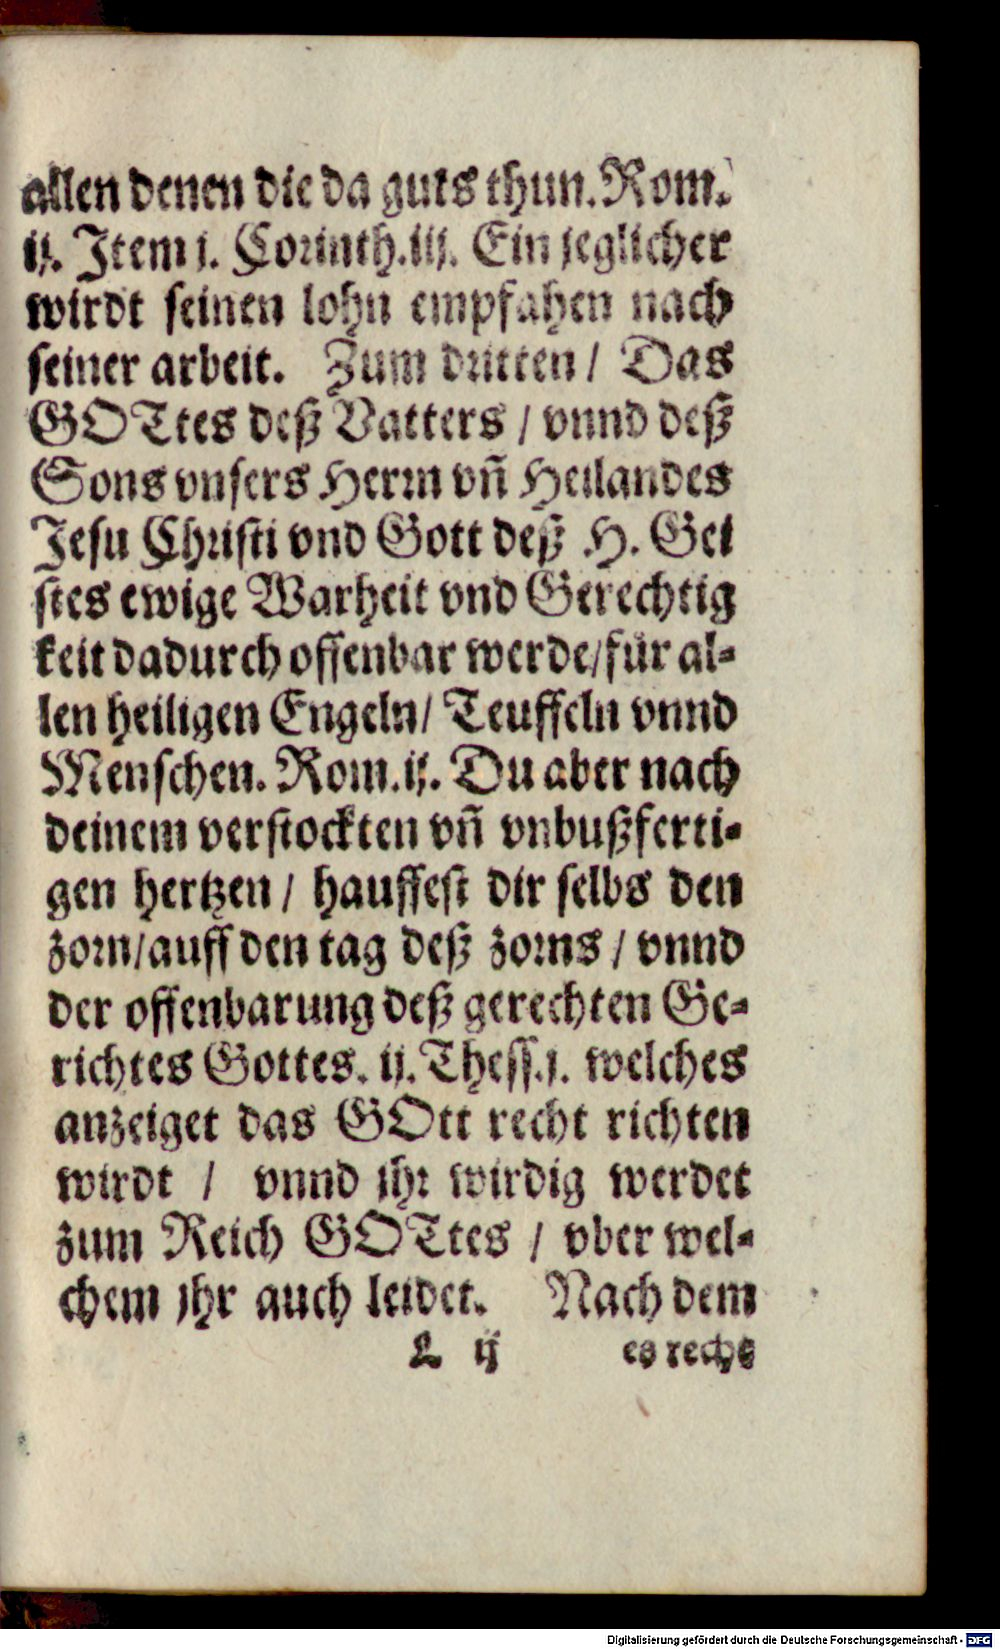 allen denen die da guts thun. Rom.
ij. Item j. Corinth. iij. Ein jeglicher
wirdt seinen lohn empfahen nach
seiner arbeit. Zum dritten / Das
GOTtes deß Vatters / vnnd deß
Sons vnsers Herrn vñ Heilandes
Jesu Christi vnd Gott deß H. Gei
stes ewige Warheit vnd Gerechtig
keit dadurch offenbar werde / für al-
len heiligen Engeln / Teuffeln vnnd
Menschen. Rom. ij. Du aber nach
deinem verstockten vñ vnbußferti-
gen hertzen / hauffest dir selbs den
zorn / auff den tag deß zorns / vnnd
der offenbarung deß gerechten Ge-
richtes Gottes. ij. Thess. j. welches
anzeiget das GOtt recht richten
wirdt / vnnd jhr wirdig werdet
zum Reich GOTtes / vber wel-
chem jhr auch leidet. Nach dem
L ij es recht
Digitalisierung gefördert durch die Deutsche Forschungsgemeinschaft - DFG